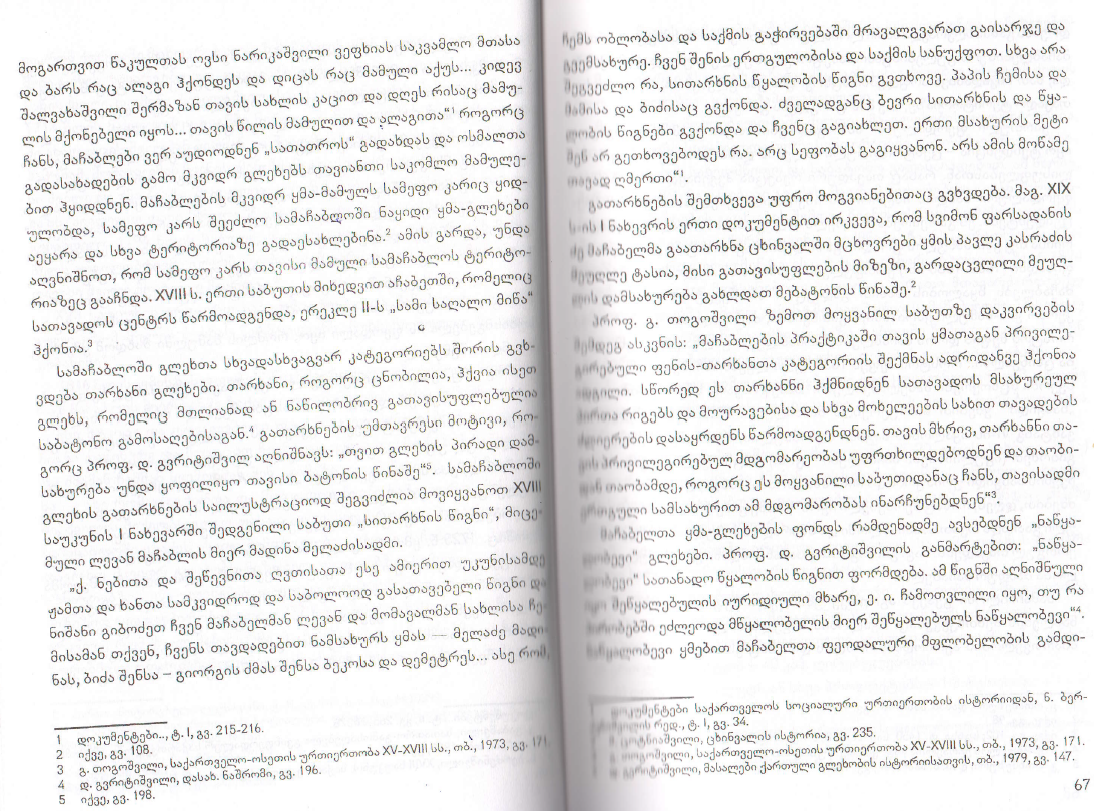 მოგართვით წაკულთას ოვსი ნარიკაშვილი ვეფხიას საკვამლო მთასა
და ბარს რაც ალაგი ჰქონდეს და დიცას რაც მამული აქუს... კიდევ
შალვახაშვილი შერმაზან თავის სახლის კაცით და დღეს რისაც მამუ-
ლის მქონებელი იყოს... თავის წილის მამულით და ალაგითა“1 როგორც
ჩანს, მაჩაბლები ვერ აუდიოდნენ „სათათროს“ გადახდას და ოსმალთა
გადასახადების გამო მკვიდრ გლეხებს თავიანთი საკომლო მამულე-
ბით ჰყიდდნენ. მაჩაბლების მკვიდრ ყმა-მამულს სამეფო კარიც ყიდ-
ულობდა, სამეფო კარს შეეძლო სამაჩაბლოში ნაყიდი ყმა-გლეხები
აეყარა და სხვა ტერიტორიაზე გადაესახლებინა.2 ამის გარდა, უნდა
აღვნიშნოთ, რომ სამეფო კარს თავისი მამული სამაჩაბლოს ტერიტო-
რიაზეც გააჩნდა. XVIII ს. ერთი საბუთის მიხედვით აჩაბეთში, რომელიც
სათავადოს ცენტრს წარმოადგენდა, ერეკლე II-ს „სამი საღალო მიწა“
ჰქონია.3
სამაჩაბლოში გლეხთა სხვადასხვაგვარ კატეგორიებს შორის გვხ-
ვდება თარხანი გლეხები. თარხანი, როგორც ცნობილია, ჰქვია ისეთ
გლეხს, რომელიც მთლიანად ან ნაწილობრივ გათავისუფლებულია
საბატონო გამოსაღებისაგან.4 გათარხნების უმთავრესი მოტივი, რო-
გორც პროფ. დ. გვრიტიშვილ აღნიშნავს: „თვით გლეხის პირადი დამ-
სახურება უნდა ყოფილიყო თავისი ბატონის წინაშე“5. სამაჩაბლოში
გლეხის გათარხნების საილუსტრაციოდ შეგვიძლია მოვიყვანოთ XVIII
საუკუნის I ნახევარში შედგენილი საბუთი „სითარხნის წიგნი“, მიცე-
მული ლევან მაჩაბლის მიერ მადინა მელაძისადმი.
„ქ. ნებითა და შეწევნითა ღვთისათა ესე ამიერით უკუნისამდე
ჟამთა და ხანთა სამკვიდროდ და საბოლოოდ გასათავებელი წიგნი და
ნიშანი გიბოძეთ ჩვენ მაჩაბელმან ლევან და მომავალმან სახლისა ჩე-
მისამან თქვენ, ჩვენს თავდადებით ნამსახურს ყმას — მელაძე მადი-
ნას, ბიძა შენსა – გიორგის ძმას შენსა ბეკოსა და დემეტრეს... ასე რომ,
1 დოკუმენტები.., ტ. I, გვ. 215-216.
2 იქვე, გვ. 108.
3 გ. თოგოშვილი, საქართველო-ოსეთის ურთიერთობა XV-XVIII სს., თბ., 1973, გვ. 171.
4 დ. გვრიტიშვილი, დასახ. ნაშრომი, გვ. 196.
5 იქვე, გვ. 198.
ჩემს ობლობასა და საქმის გაჭირვებაში მრავალგვარათ გაისარჯე და
გვემსახურე. ჩვენ შენის ერთგულობისა და საქმის სანუქფოთ. სხვა არა
შეგვეძლო რა, სითარხნის წყალობის წიგნი გვთხოვე. პაპის ჩემისა და
მამისა და ბიძისაც გვქონდა. ძველადგანც ბევრი სითარხნის და წყა-
ლობის წიგნები გვქონდა და ჩვენც გაგიახლეთ. ერთი მსახურის მეტი
შენ არ გეთხოვებოდეს რა. არც სეფობას გაგიყვანონ. არს ამის მოწამე
თავად ღმერთი“1.
გათარხნების შემთხვევა უფრო მოგვიანებითაც გვხვდება. მაგ. XIX
ს-ის I ნახევრის ერთი დოკუმენტით ირკვევა, რომ სვიმონ ფარსადანის
ძე მაჩაბელმა გაათარხნა ცხინვალში მცხოვრები ყმის პავლე კასრაძის
მეუღლე ტასია, მისი გათავისუფლების მიზეზი, გარდაცვლილი მეუღ-
ლის დამსახურება გახლდათ მებატონის წინაშე.2
პროფ. გ. თოგოშვილი ზემოთ მოყვანილ საბუთზე დაკვირვების
შემდეგ ასკვნის: „მაჩაბლების პრაქტიკაში თავის ყმათაგან პრივილე-
გირებული ფენის-თარხანთა კატეგორიის შექმნას ადრიდანვე ჰქონია
ადგილი. სწორედ ეს თარხანნი ჰქმნიდნენ სათავადოს მსახურეულ
პირთა რიგებს და მოურავებისა და სხვა მოხელეების სახით თავადების
ძლიერების დასაყრდენს წარმოადგენდნენ. თავის მხრივ, თარხანნი თა-
ვის პრივილეგირებულ მდგომარეობას უფრთხილდებოდნენ და თაობი-
დან თაობამდე, როგორც ეს მოყვანილი საბუთიდანაც ჩანს, თავისადმი
ერთგული სამსახურით ამ მდგომარობას ინარჩუნებდნენ“3.
მაჩაბელთა ყმა-გლეხების ფონდს რამდენადმე ავსებდნენ „ნაწყა-
ლობევი“ გლეხები. პროფ. დ. გვრიტიშვილის განმარტებით: „ნაწყა-
ლობევი“ სათანადო წყალობის წიგნით ფორმდება. ამ წიგნში აღნიშნული
იყო შეწყალებულის იურიდიული მხარე, ე. ი. ჩამოთვლილი იყო, თუ რა
პირობებში ეძლეოდა მწყალობელის მიერ შეწყალებულს ნაწყალობევი“4.
ნაწყალობევი ყმებით მაჩაბელთა ფეოდალური მფლობელობის გამდი-
დოკუმენტები საქართველოს სოციალური ურთიერთობის ისტორიიდან, ნ. ბერ-
რედ., ტ. I, გვ. 34.
ცხინვალის ისტორია, გვ. 235.
გ. თოგოშვილი, საქართველო-ოსეთის ურთიერთობა XV-XVIII სს., თბ., 1973, გვ. 171.
დ. გვრიტიშვილი, მასალები ქართული გლეხობის ისტორიისათვის, თბ., 1979, გვ. 147.
67